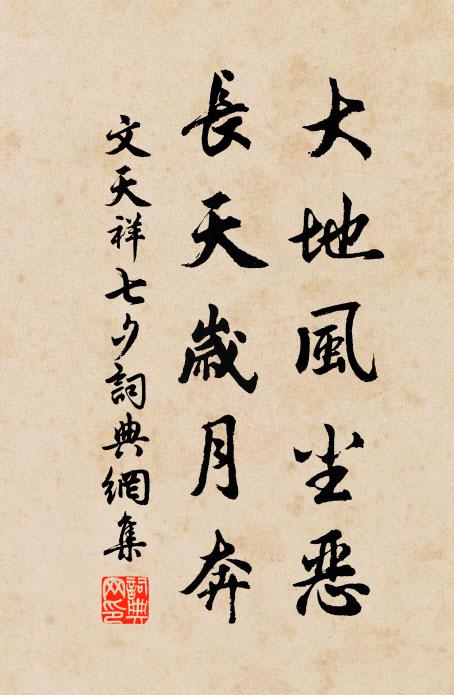 大地風尘恶
長天歲月奔
文天祥七夕詞典網集
詞典网印